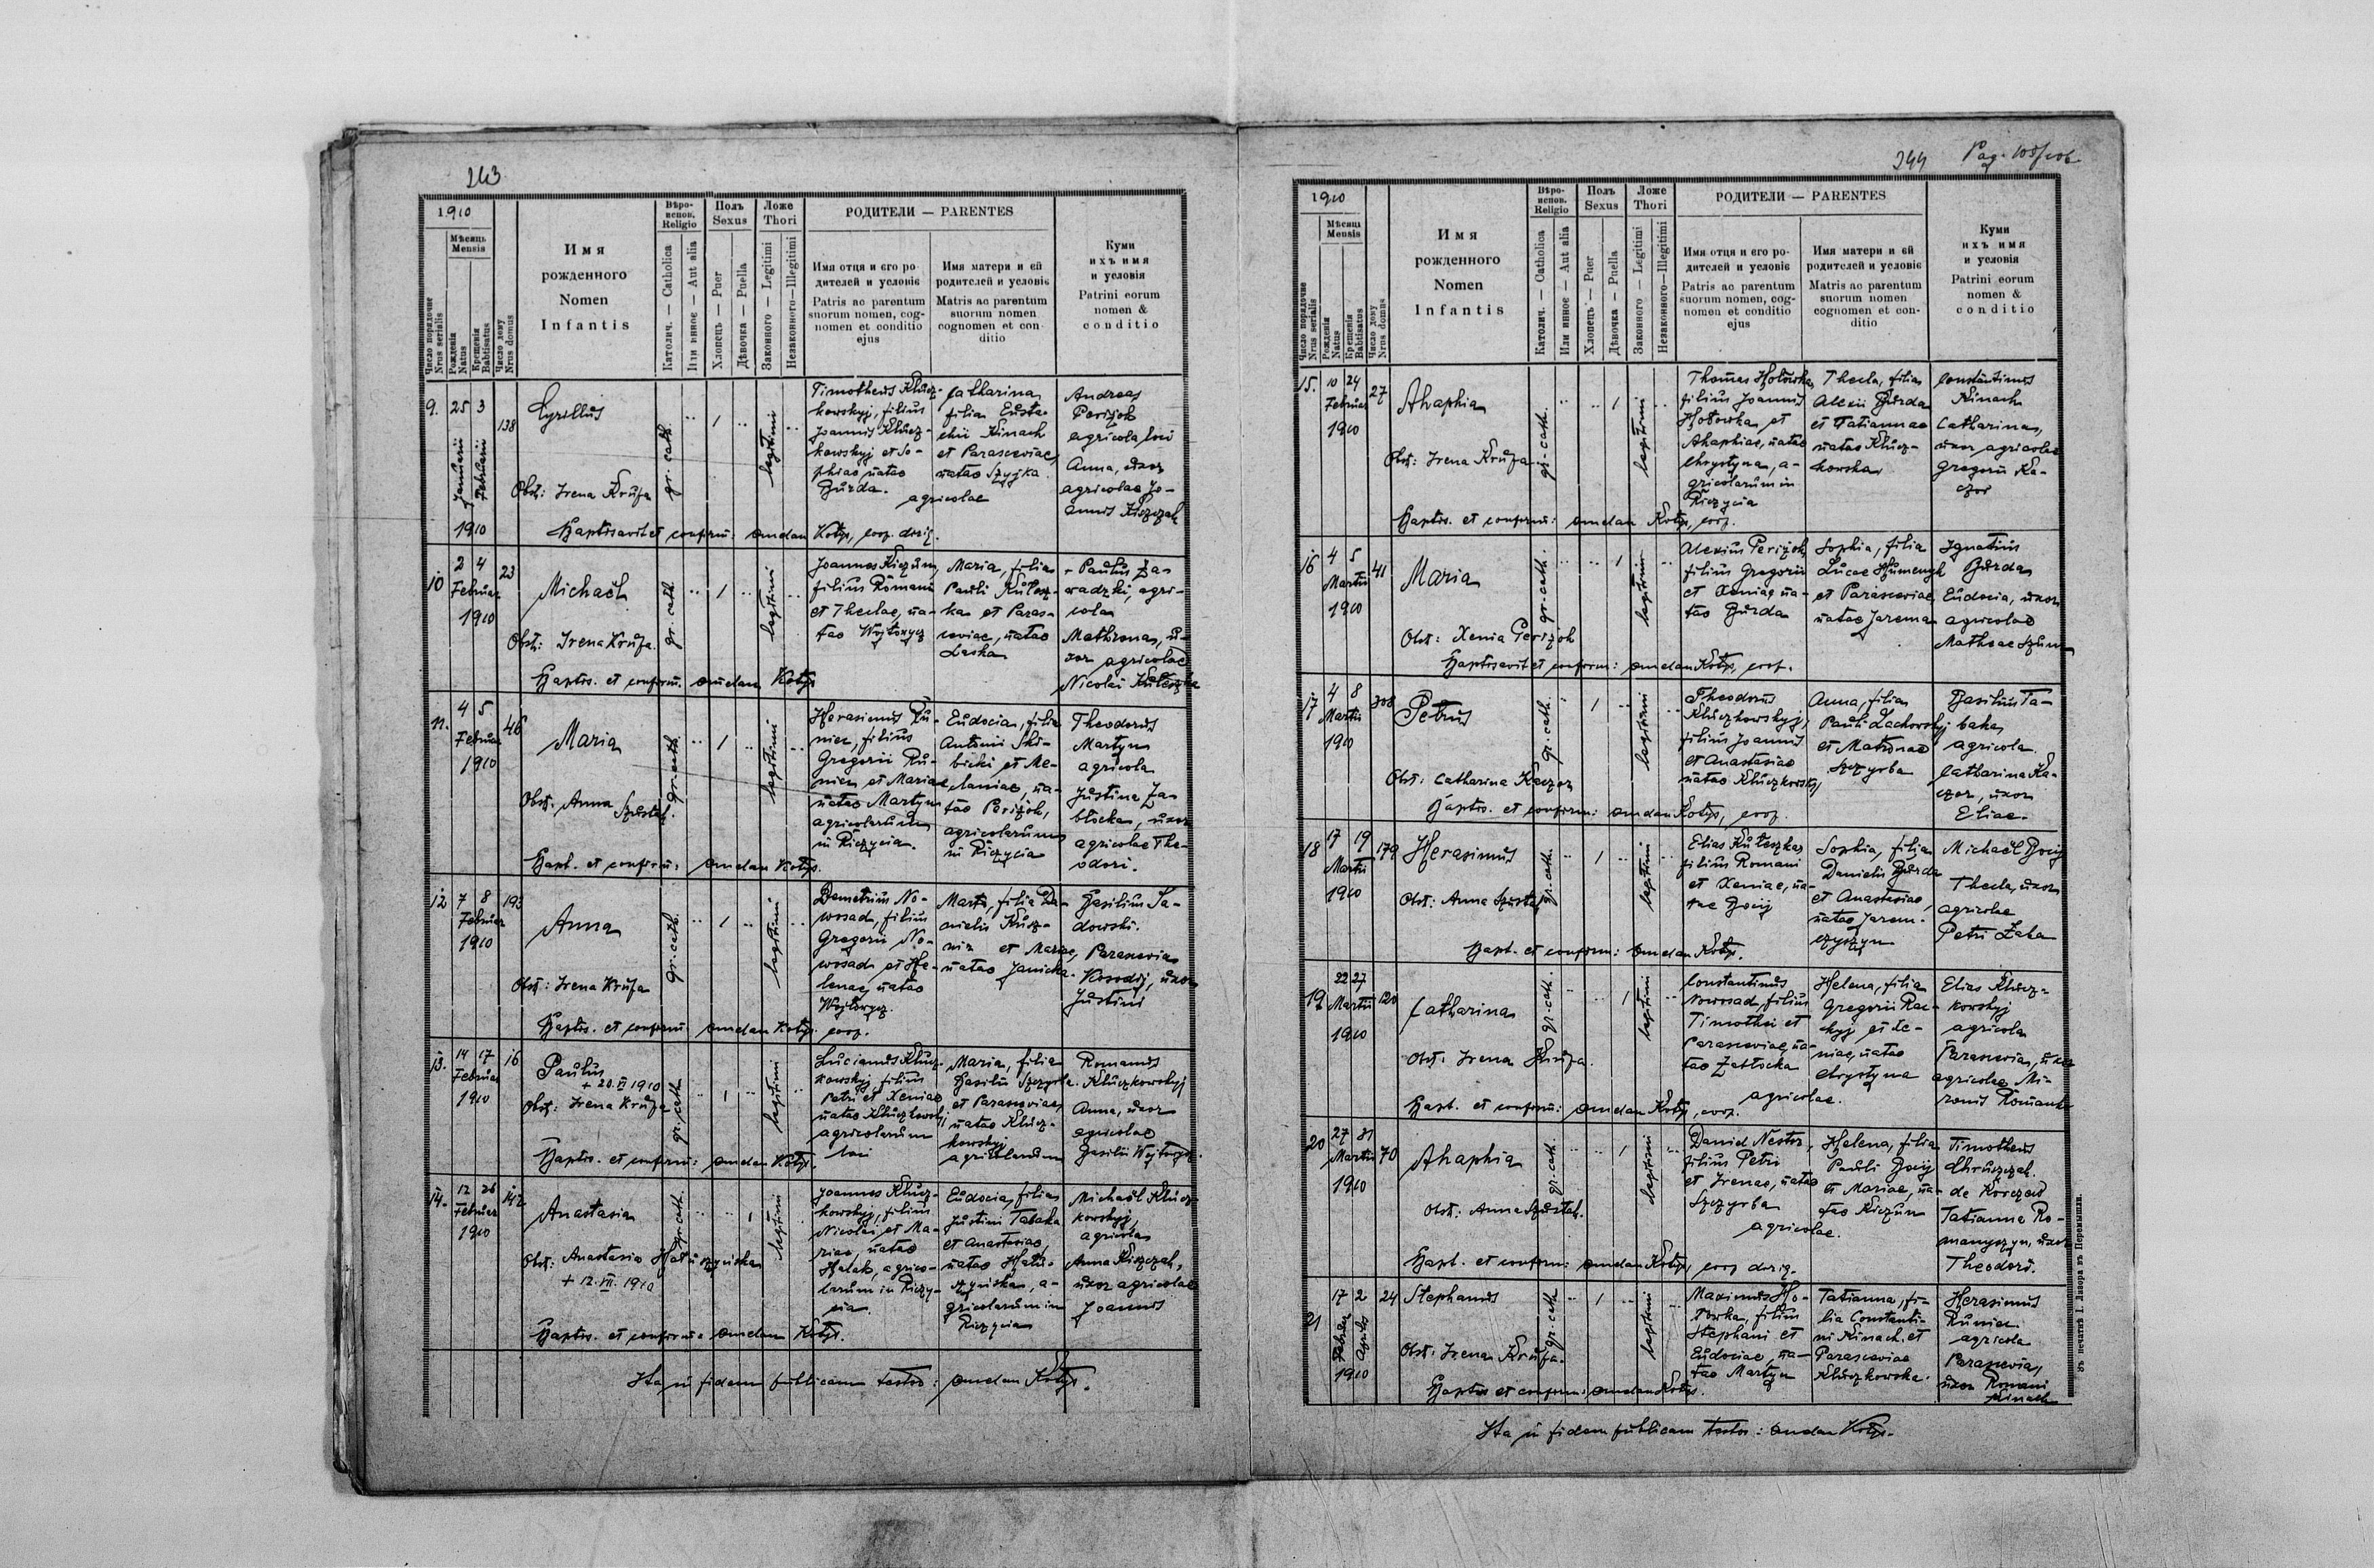 243
1910
Мѣсяць
Mensis
Число порядочне
Nrus serialis
Рожденія
Natus
Крещенія
Babtisatus
Число дому
Nrus domus
Имя
рожденного
Nomen
Infantis
Вѣро-
испов.
Religio
Католич. — Catholica
Или инноє — Aut alia
Полъ
Sexus
Хлопець — Puer
Дѣвочка — Puella
Ложе
Thori
Законного — Legitimi
Незаконного — Illegitimi
РОДИТЕЛИ — PARENTES
Имя отця и єго ро-
дителей и условіє
Patris ac parentum
suorum nomen, cog-
nomen et conditio
ejus
Имя матери и єй
родителей и условіє
Matris ac parentum
suorum nomen
cognomen et con-
ditio
Куми
ихъ имя
и условія
Patrini eorum
nomen &
conditio
9. 25 3
Januarii
Februarii
1910
138
Cyrillus
Obst: Irena Kruża
gr. cath.
legitimi
Timotheus Klucz-
kowskyj, filius
Joannis Klucz-
kowskyj et So-
phiae natae
Burda.
Catharina
filia Eusta-
chii Kinach
et Parasceviae,
natae Szyjka
agricolae
Andreas
Perizok
agricola loci
Anna, uxor
agricolae Jo-
annis Kiszczak
Baptisavit et confirm: Amelan Kotys, coop. dirig.
10 2 4
Februar
1910
23
Michaël
Obst: Irena Kruża.
gr. cath.
legitimi
Joannes Kiczun,
filius Romani
et Theclae, na-
tae Wojtowycz
Maria, filia
Pauli Kulesz-
ka et Paras-
ceviae, natae
Laska
Paulus Za-
wadzki, agri-
cola
Mathrona, u-
xor agricolae
Nicolai Kuleszka
Baptis. et confirm. Amelan Kotys
11. 4 5
Februar
1910
46
Maria
Obst. Anna Szustak.
gr. cath.
legitimi
Herasimus Ru-
niec, filius
Gregorii Ru-
niec et Mariae
natae Martyn
agricolarum
in Riczycia.
Eudocia, filia
Antonii Ski-
bicki et Me-
laniae, na-
tae Perizok,
agricolarum
in Riczycia
Theodorus
Martyn
agricola
Justina Za-
blocka, uxor
agricolae The-
odori.
Bapt. et confirm: Amelan Kotys.
12 7 8
Februar
1910
193
Anna
Obst: Irena Kruża
gr. cath.
legitimi
Demetrius No-
wosad, filius
Gregorii No-
wosad et He-
lenae, natae
Wojtowycz
Marta, filia Da-
nielis Kusz-
nir et Mariae,
natae Janicka.
Basilius Sa-
dowski.
Parascevia
Kosodij, uxor
Justini
Baptis. et confirm. Amelan Kotys. coop.
13. 14 17
Februar
1910
16
Paulus
+ 20.VI 1910
Obst: Irena Kruża
gr. cath.
legitimi
Lucianus Klucz-
kowskyj, filius
Petri et Xeniae
natae Kluczkowskyj
agricolarum
loci
Maria, filia
Basilii Szczyrba.
et Parasceviae,
natae Klucz-
kowskyj
agricolarum
Romanus
Kluczkowskyj
Anna, uxor
agricolae
Basilii Wojtowycz.
Baptis. et confirm: Amelan Kotys.
14. 12 26
Februar
1910
142
Anastasia
Obst: Anastasia Haluszyńska
+ 12.VII 1910
gr. cath.
legitimi
Joannes Klucz-
kowskyj, filius
Nicolai et Ma-
riae, natae
Halak, agrico-
larum in Riczy-
cia.
Eudocia, filia
Justini Tabaka
et Anastasiae,
natae Halu-
szynska, a-
gricolarum in
Riczycia
Michaël Klucz-
kowskyj,
agricola
Anna Kiszczak,
uxor agricolae
Joannis
Baptis. et confirm: Amelan Kotys.
Ita in fidem publicam testor: Amelan Kotys.
244
Pag.
1910
Мѣсяць
Mensis
Число порядочне
Nrus serialis
Рожденія
Natus
Крещенія
Babtisatus
Число дому
Nrus domus
Имя
рожденного
Nomen
Infantis
Вѣро-
испов.
Religio
Католич. — Catholica
Или инноє — Aut alia
Полъ
Sexus
Хлопець — Puer
Дѣвочка — Puella
Ложе
Thori
Законного — Legitimi
Незаконного — Illegitimi
РОДИТЕЛИ — PARENTES
Имя отця и єго ро-
дителей и условіє
Patris ac parentum
suorum nomen, cog-
nomen et conditio
ejus
Имя матери и єй
родителей и условіє
Matris ac parentum
suorum nomen
cognomen et con-
ditio
Куми
ихъ имя
и условія
Patrini eorum
nomen &
conditio
15. 10 24
Februar
1910
27
Ahaphia
Obst: Irena Kruża
gr. cath.
legitimi
Thomas Hołowka,
filius Joannis
Hołowka et
Ahaphiae, natae
Chrystyna, a-
gricolarum in
Riczycia
Thecla, filia
Alexii Burda
et Tatiannae
natae Klucz-
kowska
Constantinus
Kinach
Catharina,
uxor agricolae
Gregorii Ka-
czor
Baptis. et confirm: Amelan Kotys, coop.
16 4 5
Martii
1910
41
Maria
Obst: Xenia Perizok
gr. cath.
legitimi
Alexius Perizok
filius Gregorii
et Xeniae na-
tae Burda
Sophia, filia
Lucae Humenyk
et Parasceviae
natae Jarema
Ignatius
Burda
Eudocia, uxor
agricolae
Mathaei Szum
Baptisavit et confirm: Amelan Kotys, coop.
17 4 8
Martii
1910
308
Petrus
Obst: Catharina Kaczor
gr. cath.
legitimi
Theodorus
Kluczkowskyj,
filius Joannis
et Anastasiae
natae Kluczkowskyj
Anna, filia
Pauli Lachowskyj
et Matronae
Szczyrba
Basilius Ta-
baka
agricola
Catharina Ka-
czor, uxor
Eliae.
Baptis. et confirm: Amelan Kotys, coop.
18 17 19
Martii
1910
179
Herasimus
Obst: Anna Szustak
gr. cath.
legitimi
Elias Kuleszka
filius Romani
et Xeniae, na-
tae Bocij
Sophia, filia
Danielis Burda
et Anastasiae,
natae Jarem-
czyszyn
Michaël Bocij
Thecla, uxor
agricolae
Petri Zaba
Bapt. et confirm: Amelan Kotys.
19 22 27
Martii
1910
120
Catharina
Obst. Irena Kruża.
gr. cath.
legitimi
Constantinus
Nowosad, filius
Timothei et
Parasceviae, na-
tae Zablocka
Helena, filia
Gregorii Rac-
kyj et Xe-
niae, natae
Chrystyna
agricolae.
Elias Klucz-
kowskyj
agricola
Parascevia, uxor
agricolae Mi-
ronis Romaniuk
Bapt. et confirm: Amelan Kotys, coop.
20 27 31
Martii
1910
70
Ahaphia
Obst: Anna Szustak.
gr. cath.
legitimi
Daniel Nestor,
filius Petri
et Irenae, natae
Szczyrba
Helena, filia
Pauli Bocij
et Mariae, na-
tae Kiczun
agricolae.
Timotheus
Chruszczak.
de Korczew
Tatianna Ro-
manyszyn, uxor
Theodori.
Bapt. et confirm: Amelan Kotys, coop dirig.
21 17 2
Februar
Aprilis
1910
24
Stephanus
Obst. Irena Kruża.
gr. cath.
legitimi
Maximus Ho-
łowka, filius
Stephani et
Eudociae, na-
tae Martyn
Tatianna, fi-
lia Constanti-
ni Kinach et
Parasceviae
Kluczkowska.
Herasimus
Runiec
agricola
Parascevia,
uxor Romani
Kinach
Baptis et confirm: Amelan Kotys.
Ita in fidem publicam testor: Amelan Kotys.
Зъ печатнѣ І. Лазора въ Перемышли.